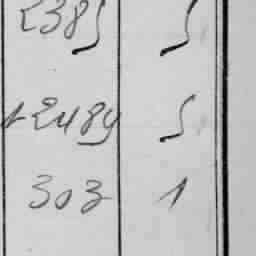 2385 5
12489 5
303 1